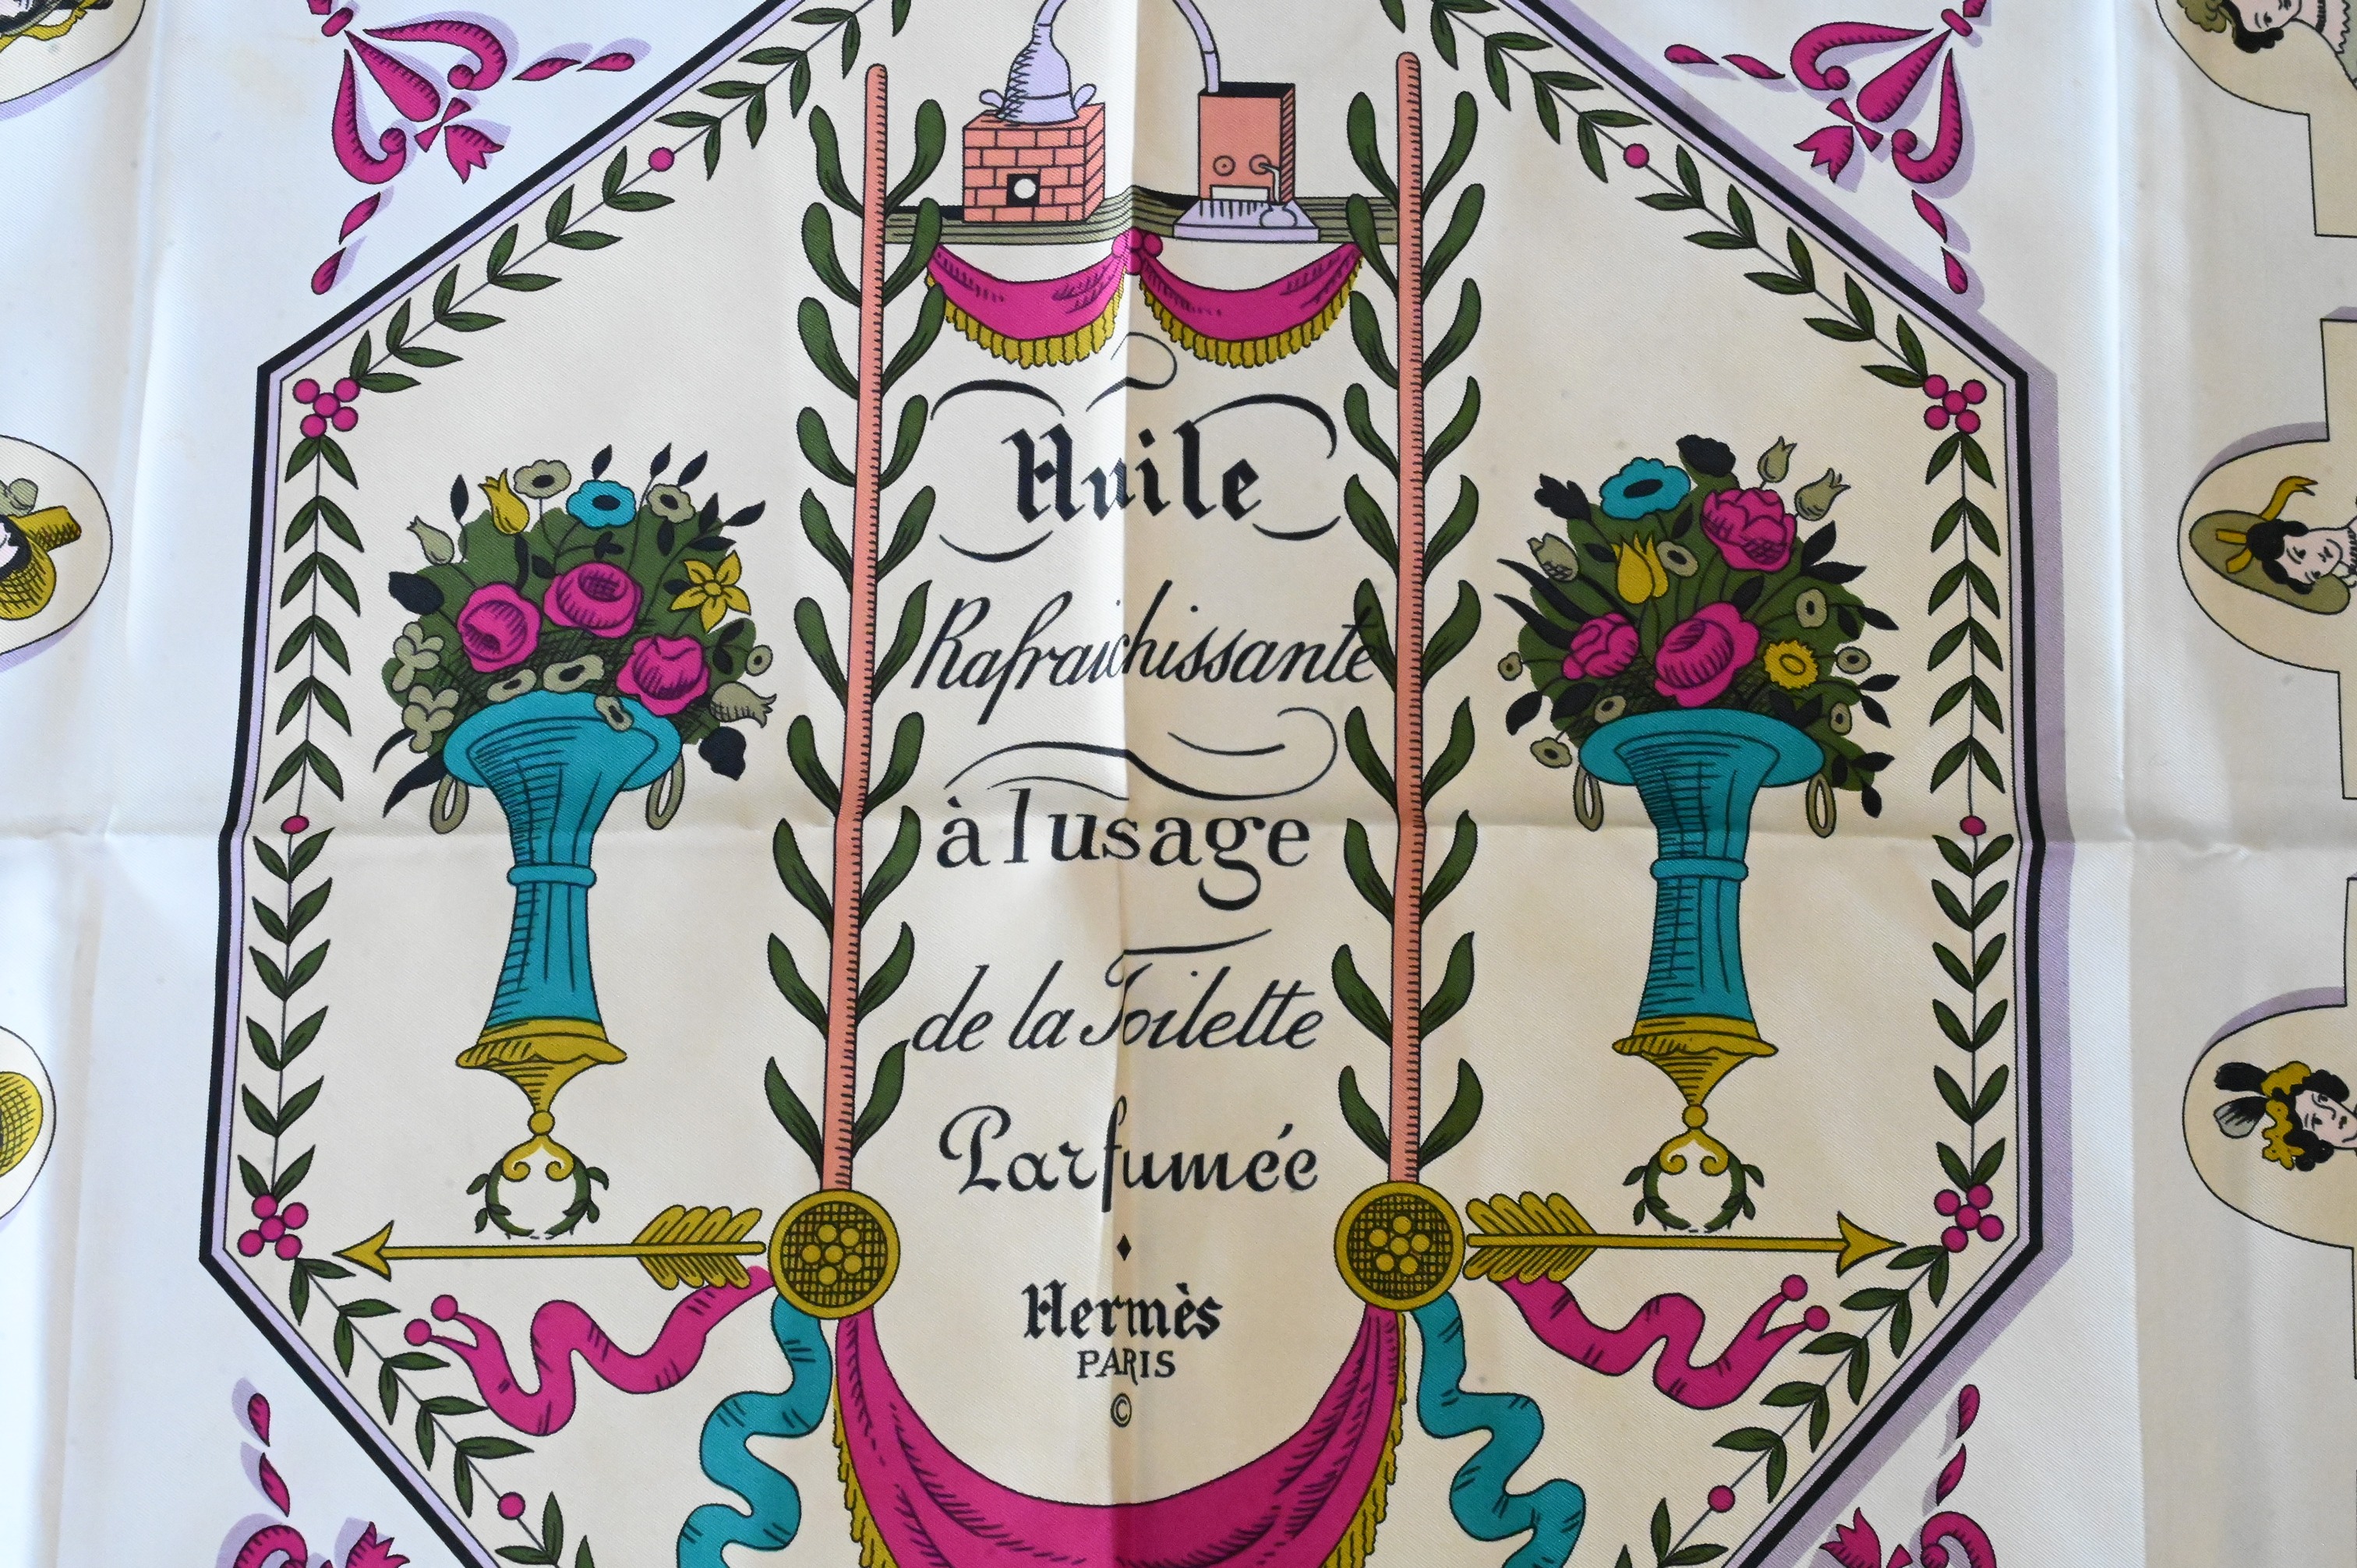 Huile
Rafraichissante
à lusage
de la Toilette
Parfumée
Hermès
PARIS
©